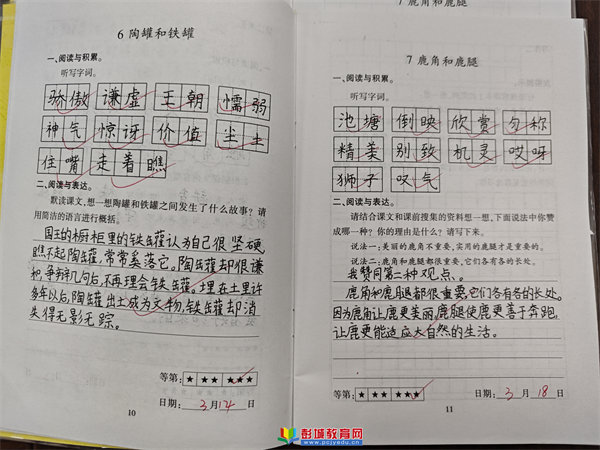 6 陶罐和铁罐
一、阅读与积累。
听写字词。
骄傲 谦虚 王朝 懦弱
神气 惊讶 价值 尘土
住嘴 走着瞧
二、阅读与表达。
默读课文,想一想陶罐和铁罐之间发生了什么故事?请
用简洁的语言进行概括。
国王的橱柜里的铁罐认为自己很坚硬,
瞧不起陶罐,常常奚落它。陶罐却很谦
和,争辩几句后,不再理会铁罐。埋在土里许
多年以后,陶罐出土成为文物,铁罐却消
失得无影无踪。
等第: ★ ★★ ★★★
日期: 3月12日
10
7 鹿角和鹿腿
7 鹿角和鹿腿
一、阅读与积累。
听写字词。
池塘 倒映 欣赏 匀称
精美 别致 机灵 哎呀
狮子 叹气
二、阅读与表达。
请结合课文和课前搜集的资料想一想,下面说法中你赞
成哪一种?你的理由是什么?请写下来。
说法一:美丽的鹿角不重要,实用的鹿腿才是重要的。
说法二:鹿角和鹿腿都很重要,它们各有各的长处。
我赞同第二种观点。
鹿角和鹿腿都很重要,它们各有各的长处。
因为鹿角让鹿更美丽,鹿腿使鹿更善于奔跑,
让鹿更能适应大自然的生活。
等第: ★ ★★ ★★★
日期: 3月18日
11
彭城教育网
www.pcjyedu.cn